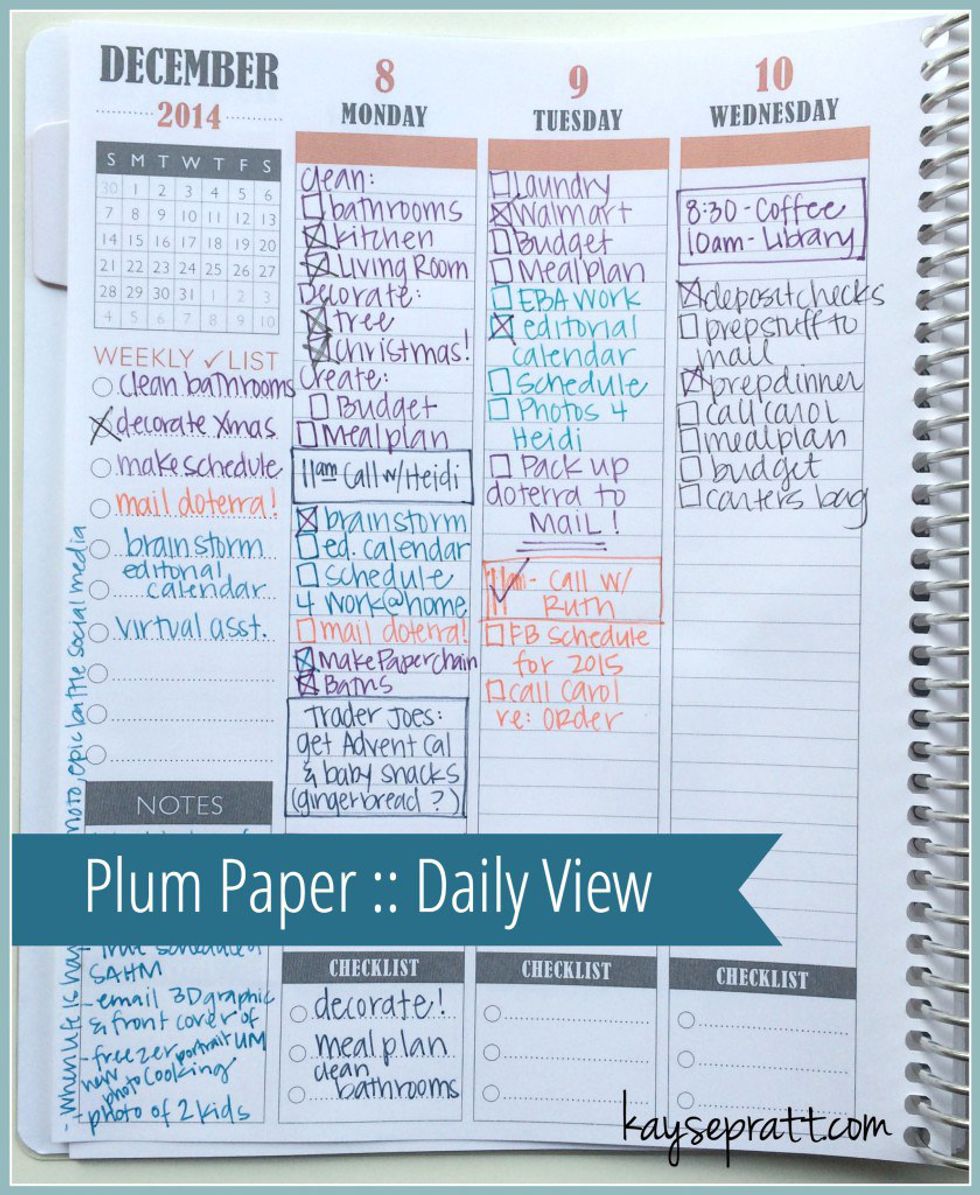 DECEMBER
2014
S M T W T F S
30 1 2 3 4 5 6
7 8 9 10 11 12 13
14 15 16 17 18 19 20
21 22 23 24 25 26 27
28 29 30 31 1 2 3
4 5 6 7 8 9 10
WEEKLY ✓ LIST
clean bathrooms
decorate xmas
make schedule
mail doterra!
brainstorm
editorial
calendar
virtual asst.
NOTES
SAHM
- email 3D graphic
& front cover of
- freezer portrait UM
new
photo cooking
- photo of 2 kids
- when life is
epic battle social media
8
MONDAY
clean:
bathrooms
kitchen
Living Room
Decorate:
tree
Christmas!
Create:
Budget
Mealplan
11am Call w/Heidi
brainstorm
ed. calendar
schedule
4 work@home
mail doterra!
Make Paperchain
Baths
Trader Joes:
get Advent Cal
& baby snacks
(gingerbread ?)
CHECKLIST
decorate!
meal plan
clean
bathrooms
9
TUESDAY
Laundry
Walmart
Budget
Mealplan
EBA Work
editorial
calendar
Schedule
Photos 4
Heidi
Pack up
doterra to
MaiL!
11am- Call w/
Ruth
FB schedule
for 2015
call Carol
re: order
CHECKLIST
10
WEDNESDAY
8:30 - Coffee
10am - Library
deposit checks
prep stuff to
mail
prep dinner
call carol
mealplan
budget
carters bag
CHECKLIST
Plum Paper :: Daily View
kaysepratt.com